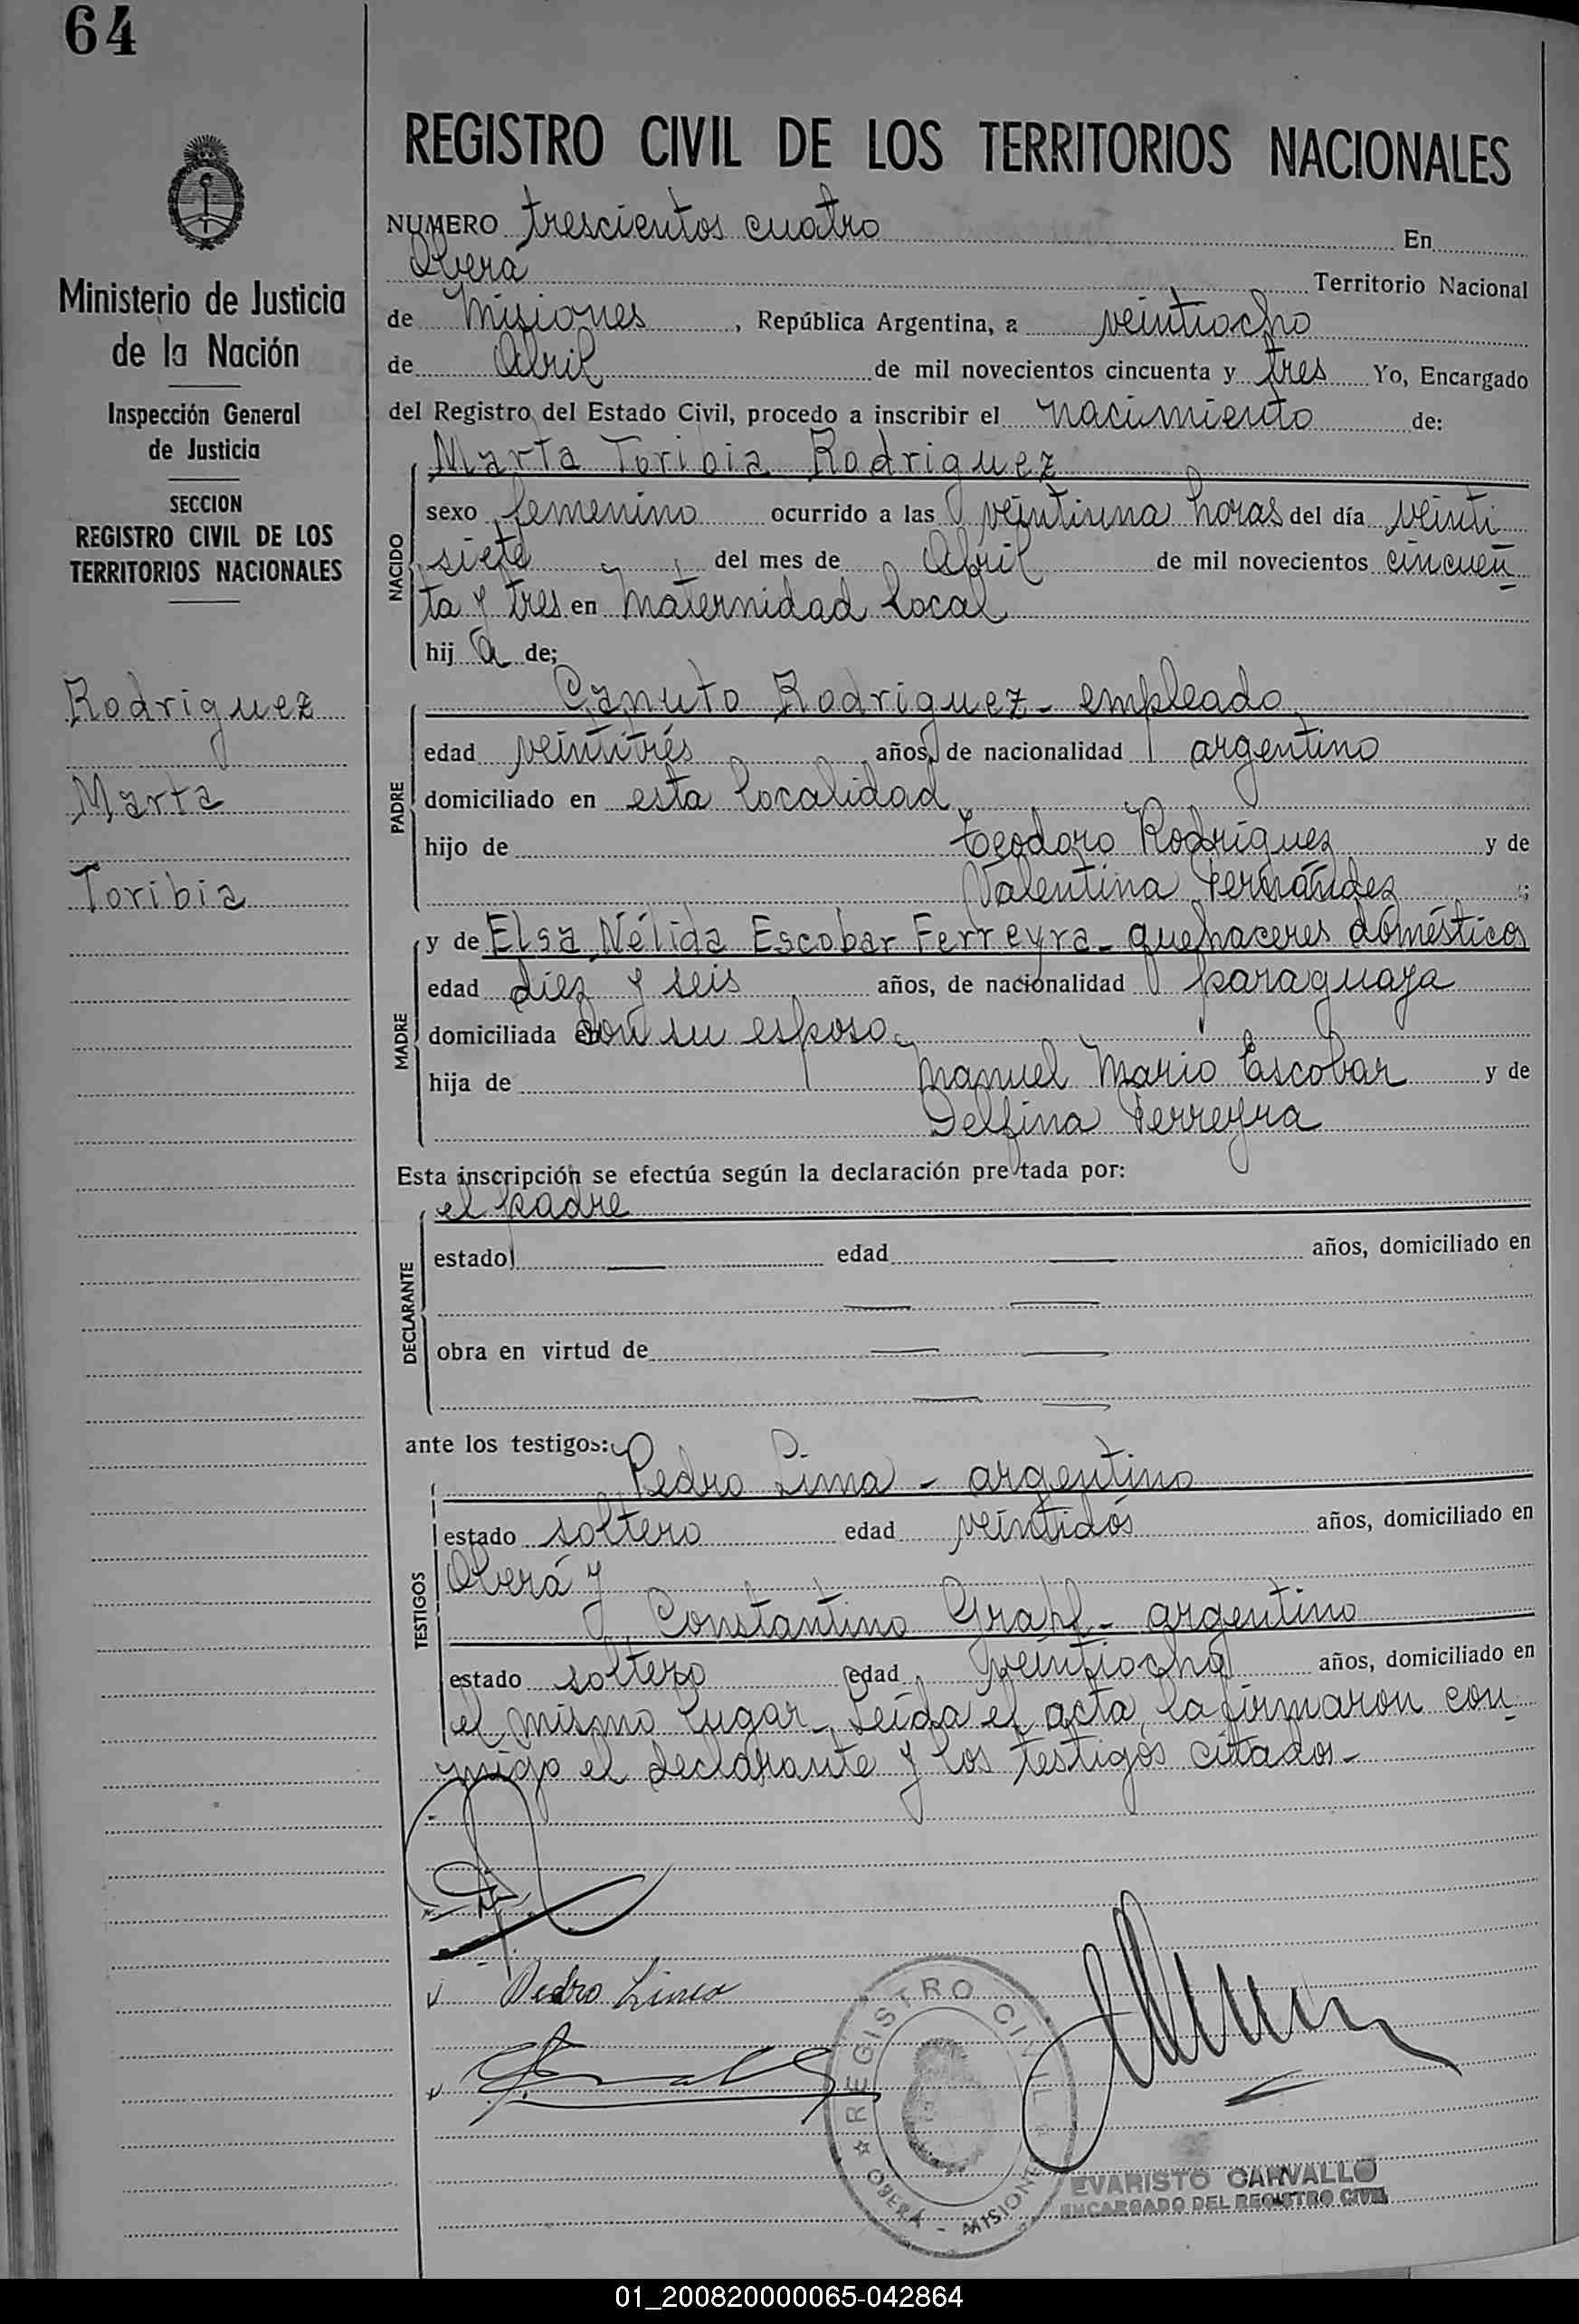 64
REGISTRO CIVIL DE LOS TERRITORIOS NACIONALES
Ministerio de Justicia
de la Nación
Inspección General
de Justicia
SECCION
REGISTRO CIVIL DE LOS
TERRITORIOS NACIONALES
Rodriguez
Marta
Toribia
NUMERO trescientos cuatro En
Oberá Territorio Nacional
de Misiones, República Argentina, a veintiocho
de Abril de mil novecientos cincuenta y tres Yo, Encargado
del Registro del Estado Civil, procedo a inscribir el nacimiento de:
NACIDO
Marta Toribia Rodriguez
sexo femenino ocurrido a las veintiuna horas del día veinti
siete del mes de Abril de mil novecientos cincuen
ta y tres en Maternidad local
hij a de;
PADRE
Canuto Rodriguez - empleado
edad veintitrés años, de nacionalidad argentino
domiciliado en esta localidad
hijo de Teodoro Rodríguez y de
Valentina Fernández ;
MADRE
y de Elsa Nélida Escobar Ferreyra - quehaceres domésticos
edad diez y seis años, de nacionalidad paraguaya
domiciliada en con su esposo
hija de Manuel Mario Escobar y de
Delfina Ferreyra
Esta inscripción se efectúa según la declaración pre tada por:
DECLARANTE
el padre
estado edad años, domiciliado en
obra en virtud de
ante los testigos:
TESTIGOS
Pedro Lima - argentino
estado soltero edad veintidós años, domiciliado en
Oberá y
Constantino Grahl - argentino
estado soltero edad veintiocho años, domiciliado en
el mismo lugar - Leída el acta, la firmaron con
migo el declarante y los testigos citados -
Pedro Lima
REGISTRO CIVIL
OBERÁ - MISIONES
EVARISTO CARVALLO
ENCARGADO DEL REGISTRO CIVIL
01_200820000065-042864